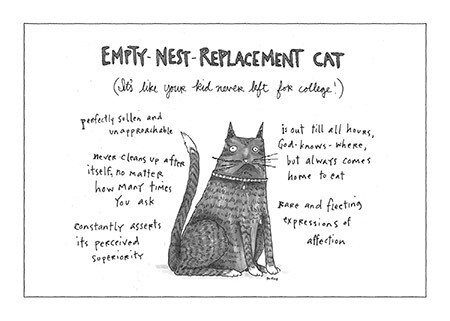 EMPTY-NEST-REPLACEMENT CAT
(It's like your kid never left for college!)
perfectly sullen and
unapproachable
never cleans up after
itself, no matter
how many times
you ask
constantly asserts
its perceived
superiority
is out till all hours,
God-knows-where,
but always comes
home to eat
Rare and fleeting
expressions of
affection